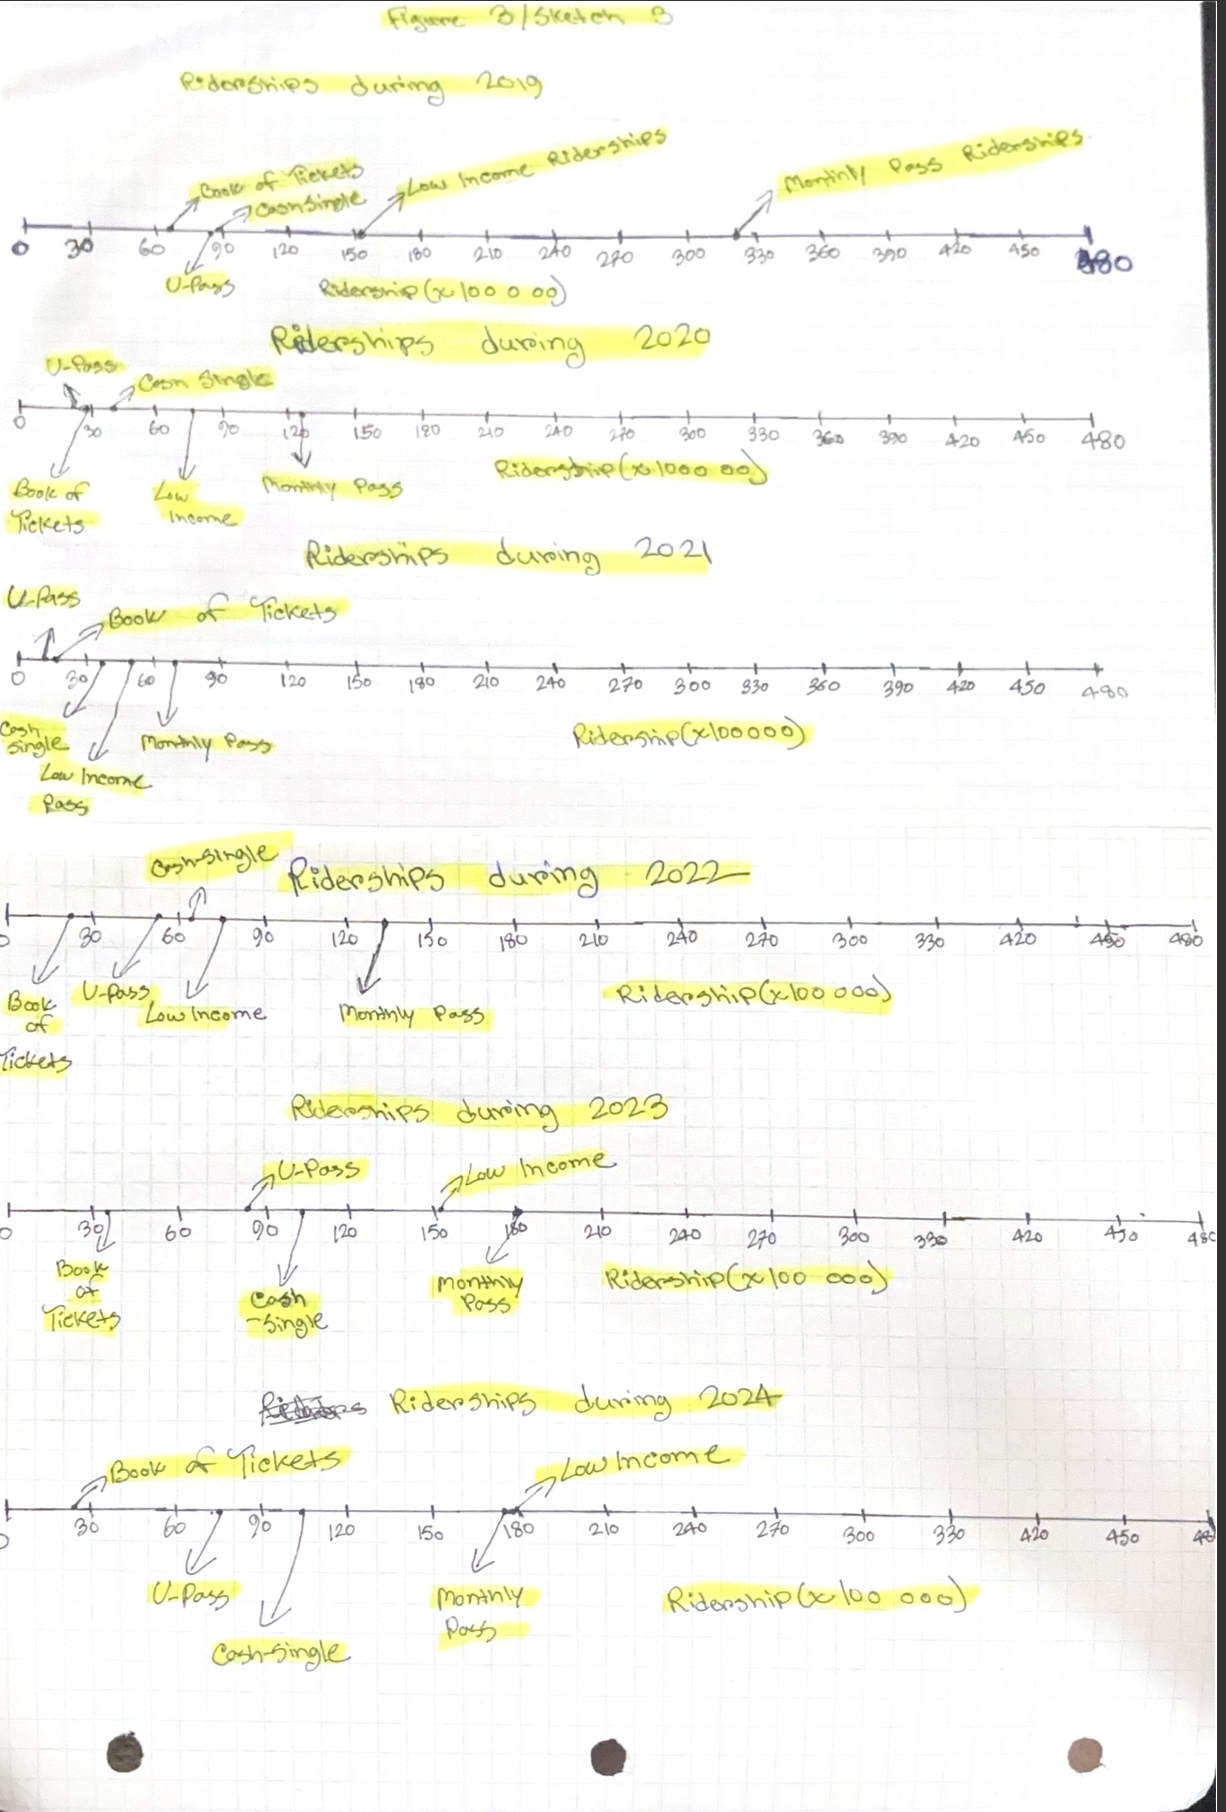 Figure 3/Sketch 3
Riderships during 2019
Book of Tickets
Cash Single
Low Income Riderships
Monthly Pass Riderships
0 30 60 90 120 150 180 210 240 270 300 330 360 390 420 450 480
U-Pass
Ridership (x100 000)
Riderships during 2020
U-Pass
Cash Single
0 30 60 90 120 150 180 210 240 270 300 330 360 390 420 450 480
Book of
Tickets
Low
Income
Monthly Pass
Ridership (x1000 00)
Riderships during 2021
U-Pass
Book of Tickets
0 30 60 90 120 150 180 210 240 270 300 330 360 390 420 450 480
Cash
Single
Low Income
Pass
Monthly Pass
Ridership (x100000)
Cash-Single
Riderships during 2022
0 30 60 90 120 150 180 210 240 270 300 330 420 450 480
Book
of
Tickets
U-Pass
Low Income
Monthly Pass
Ridership (x100 000)
Riderships during 2023
U-Pass
Low Income
0 30 60 90 120 150 180 210 240 270 300 330 420 450 480
Book
of
Tickets
Cash
-Single
Monthly
Pass
Ridership (x100 000)
Riderships during 2024
Book of Tickets
Low Income
0 30 60 90 120 150 180 210 240 270 300 330 420 450
U-Pass
Cash-Single
Monthly
Pass
Ridership (x100 000)